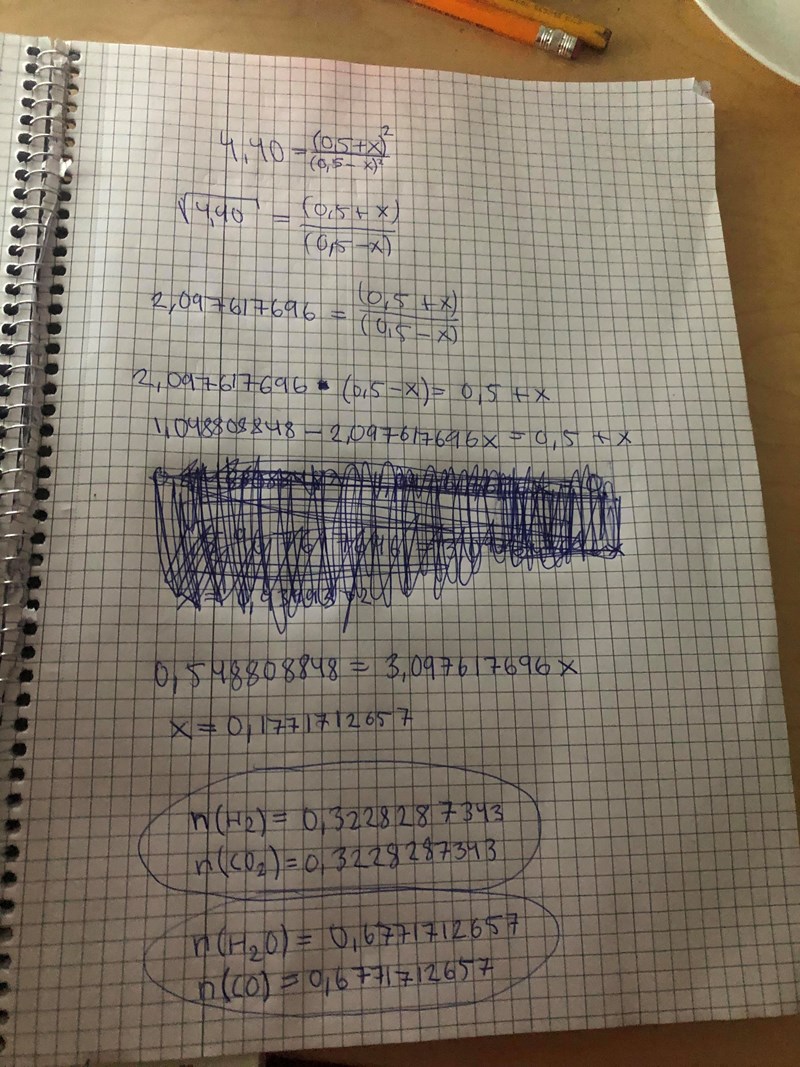 4,40 = (0,5+x)² / (0,5-x)²
√4,40 = (0,5+x) / (0,5-x)
2,097617696 = (0,5+x) / (0,5-x)
2,097617696 • (0,5-x) = 0,5 + x
1,048808848 - 2,097617696x = 0,5 + x
0,548808848 = 3,097617696x
x = 0,1771712657
n(H₂) = 0,3228287343
n(CO₂) = 0,3228287343
n(H₂O) = 0,6771712657
n(CO) = 0,6771712657